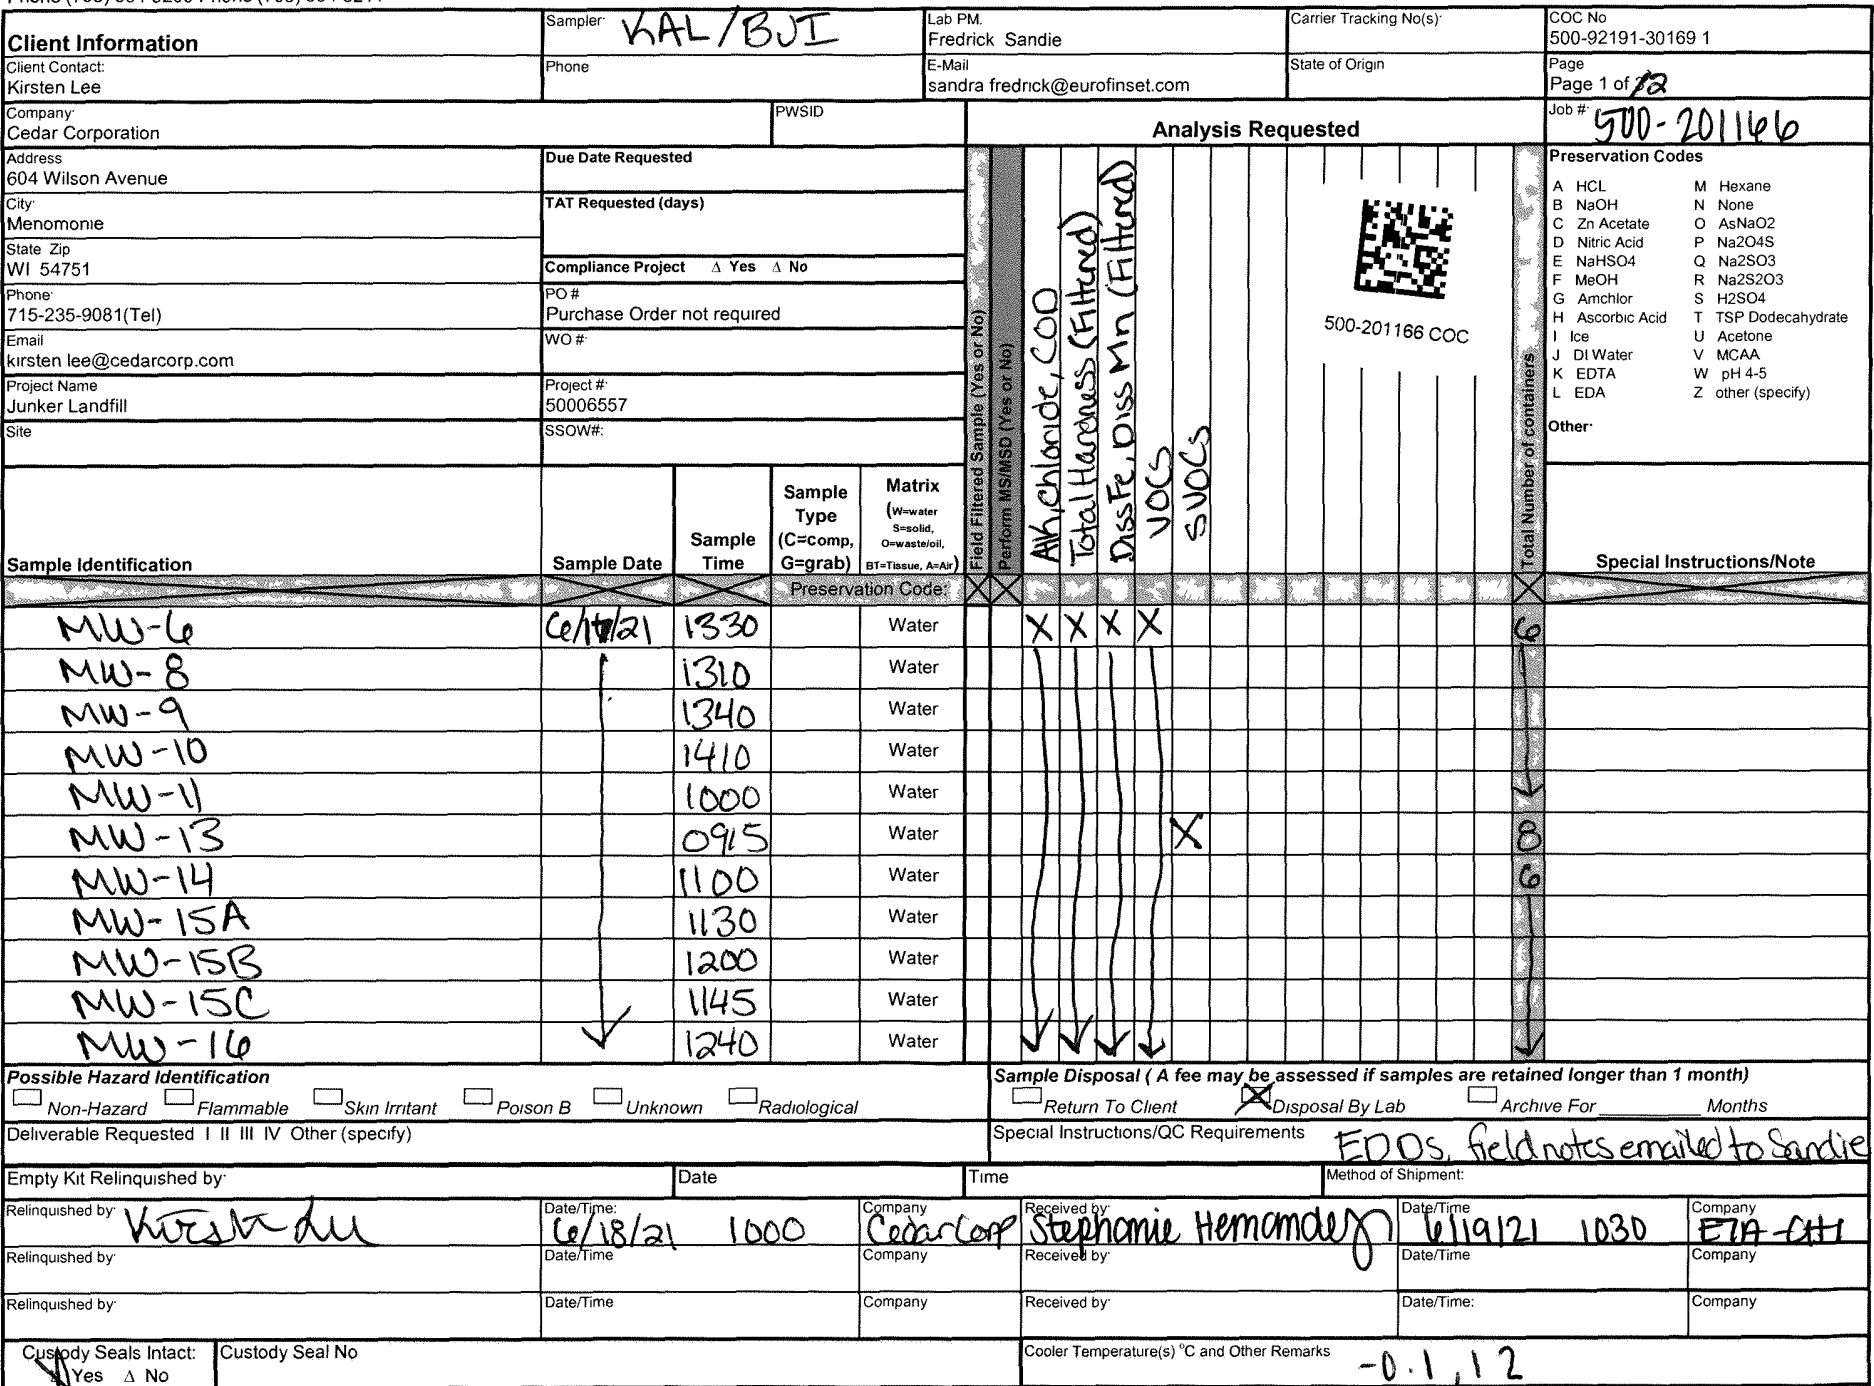 Client Information
Sampler: KAL/BJI
Lab PM.
Fredrick Sandie
Carrier Tracking No(s):
COC No
500-92191-30169 1
Client Contact:
Kirsten Lee
Phone
E-Mail
sandra fredrick@eurofinset.com
State of Origin
Page
Page 1 of 2
Company:
Cedar Corporation
PWSID
Analysis Requested
Job #: 500-201166
Address
604 Wilson Avenue
Due Date Requested
City:
Menomonie
TAT Requested (days)
State Zip
WI 54751
Compliance Project Δ Yes Δ No
Phone:
715-235-9081(Tel)
PO #
Purchase Order not required
Email
kirsten lee@cedarcorp.com
WO #:
Project Name
Junker Landfill
Project #:
50006557
Site
SSOW#:
Field Filtered Sample (Yes or No)
Perform MS/MSD (Yes or No)
Alk, Chloride, COD
Total Hardness (Filtered)
Diss Fe, Diss Mn (Filtered)
VOCs
SVOCs
500-201166 COC
Total Number of containers
Preservation Codes
A HCL M Hexane
B NaOH N None
C Zn Acetate O AsNaO2
D Nitric Acid P Na2O4S
E NaHSO4 Q Na2SO3
F MeOH R Na2S2O3
G Amchlor S H2SO4
H Ascorbic Acid T TSP Dodecahydrate
I Ice U Acetone
J DI Water V MCAA
K EDTA W pH 4-5
L EDA Z other (specify)
Other:
Sample Identification
Sample Date
Sample Time
Sample Type (C=comp, G=grab)
Matrix (W=water S=solid, O=waste/oil, BT=Tissue, A=Air)
Special Instructions/Note
Preservation Code:
MW-6 6/17/21 1330 Water X X X X 6
MW-8 1310 Water
MW-9 1340 Water
MW-10 1410 Water
MW-11 1000 Water
MW-13 0915 Water X 8
MW-14 1100 Water 6
MW-15A 1130 Water
MW-15B 1200 Water
MW-15C 1145 Water
MW-16 1240 Water
Possible Hazard Identification
Non-Hazard Flammable Skin Irritant Poison B Unknown Radiological
Sample Disposal ( A fee may be assessed if samples are retained longer than 1 month)
Return To Client X Disposal By Lab Archive For Months
Deliverable Requested I II III IV Other (specify)
Special Instructions/QC Requirements EDDs, field notes emailed to Sandie
Empty Kit Relinquished by:
Date
Time
Method of Shipment:
Relinquished by: Kirsten Lee
Date/Time: 6/18/21 1000
Company Cedar Corp
Received by: Stephanie Hernandez
Date/Time 6/19/21 1030
Company ETA-CHI
Relinquished by:
Date/Time
Company
Received by:
Date/Time
Company
Relinquished by:
Date/Time
Company
Received by:
Date/Time:
Company
Custody Seals Intact:
Δ Yes Δ No
Custody Seal No
Cooler Temperature(s) °C and Other Remarks -0.1, 1 2